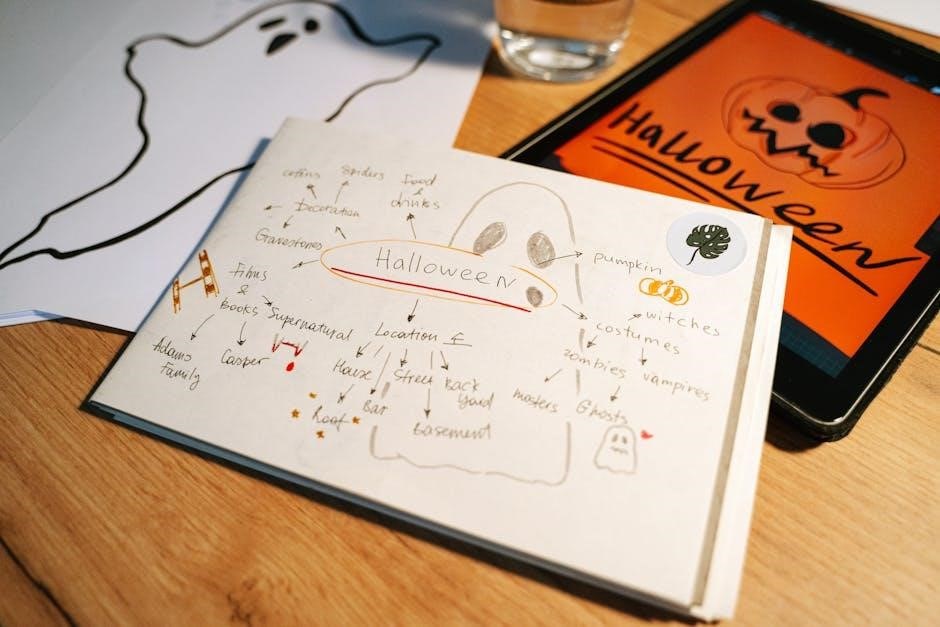 Halloween
coffins
spiders
Food
&
drinks
Decoration
Gravestones
Halloween
pumpkin
Films
&
Books
Supernatural
Location
costumes
witches
Adams
Family
Casper
House
Street
Back
Yard
zombies
vampires
Roof
Bar
Basement
Ghosts